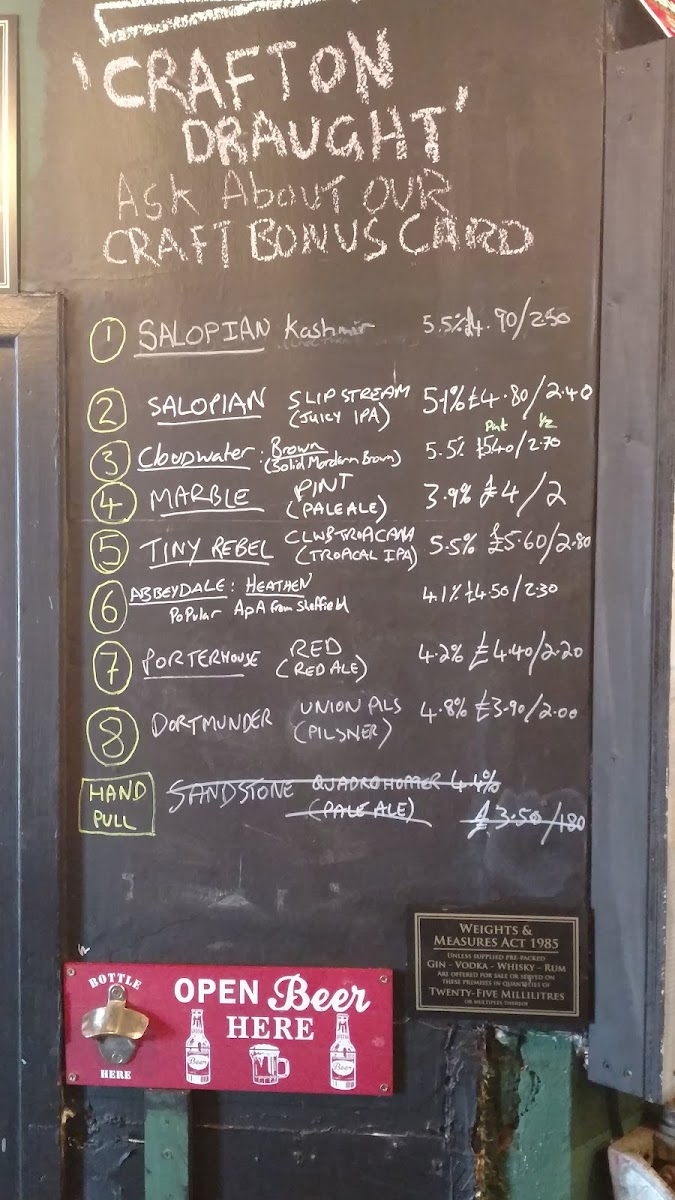 'CRAFT ON
DRAUGHT'
ASK ABOUT OUR
CRAFT BONUS CARD
1 SALOPIAN Kashmir 5.5% £4.90/2.50
2 SALOPIAN SLIPSTREAM 5.1% £4.80/2.40
(JUICY IPA)
Pint 1/2
3 Cloudwater: Brown 5.5% £5.40/2.70
(Solid Mordern Brown)
4 MARBLE PINT 3.9% £4/2
(PALE ALE)
5 TINY REBEL CLWB TROPICANA 5.5% £5.60/2.80
(TROPICAL IPA)
6 ABBEYDALE: HEATHEN 4.1% £4.50/2.30
PoPular APA from Sheffield
7 PORTERHOUSE RED 4.2% £4.40/2.20
(RED ALE)
8 DORTMUNDER UNION PILS 4.8% £3.90/2.00
(PILSNER)
HAND PULL SANDSTONE QUADROHOPPER 4.4%
(PALE ALE) £3.50/180
BOTTLE
OPEN Beer
HERE
HERE
Beer
Beer
WEIGHTS &
MEASURES ACT 1985
UNLESS SUPPLIED PRE-PACKED
GIN - VODKA - WHISKY - RUM
ARE OFFERED FOR SALE OR SERVED ON
THESE PREMISES IN QUANTITIES OF
TWENTY-FIVE MILLILITRES
OR MULTIPLES THEREOF